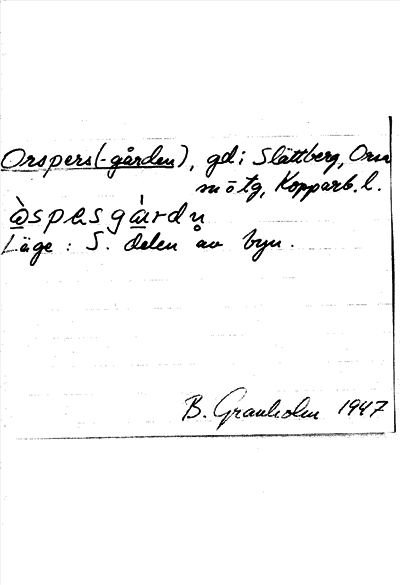 Orspers(-gården), gd i Slättberg, Orsa
sn o tg, Kopparb. l.
å̀spəsgá̊rdn̥
Läge: S. delen av byn.
B. Granholm 1947